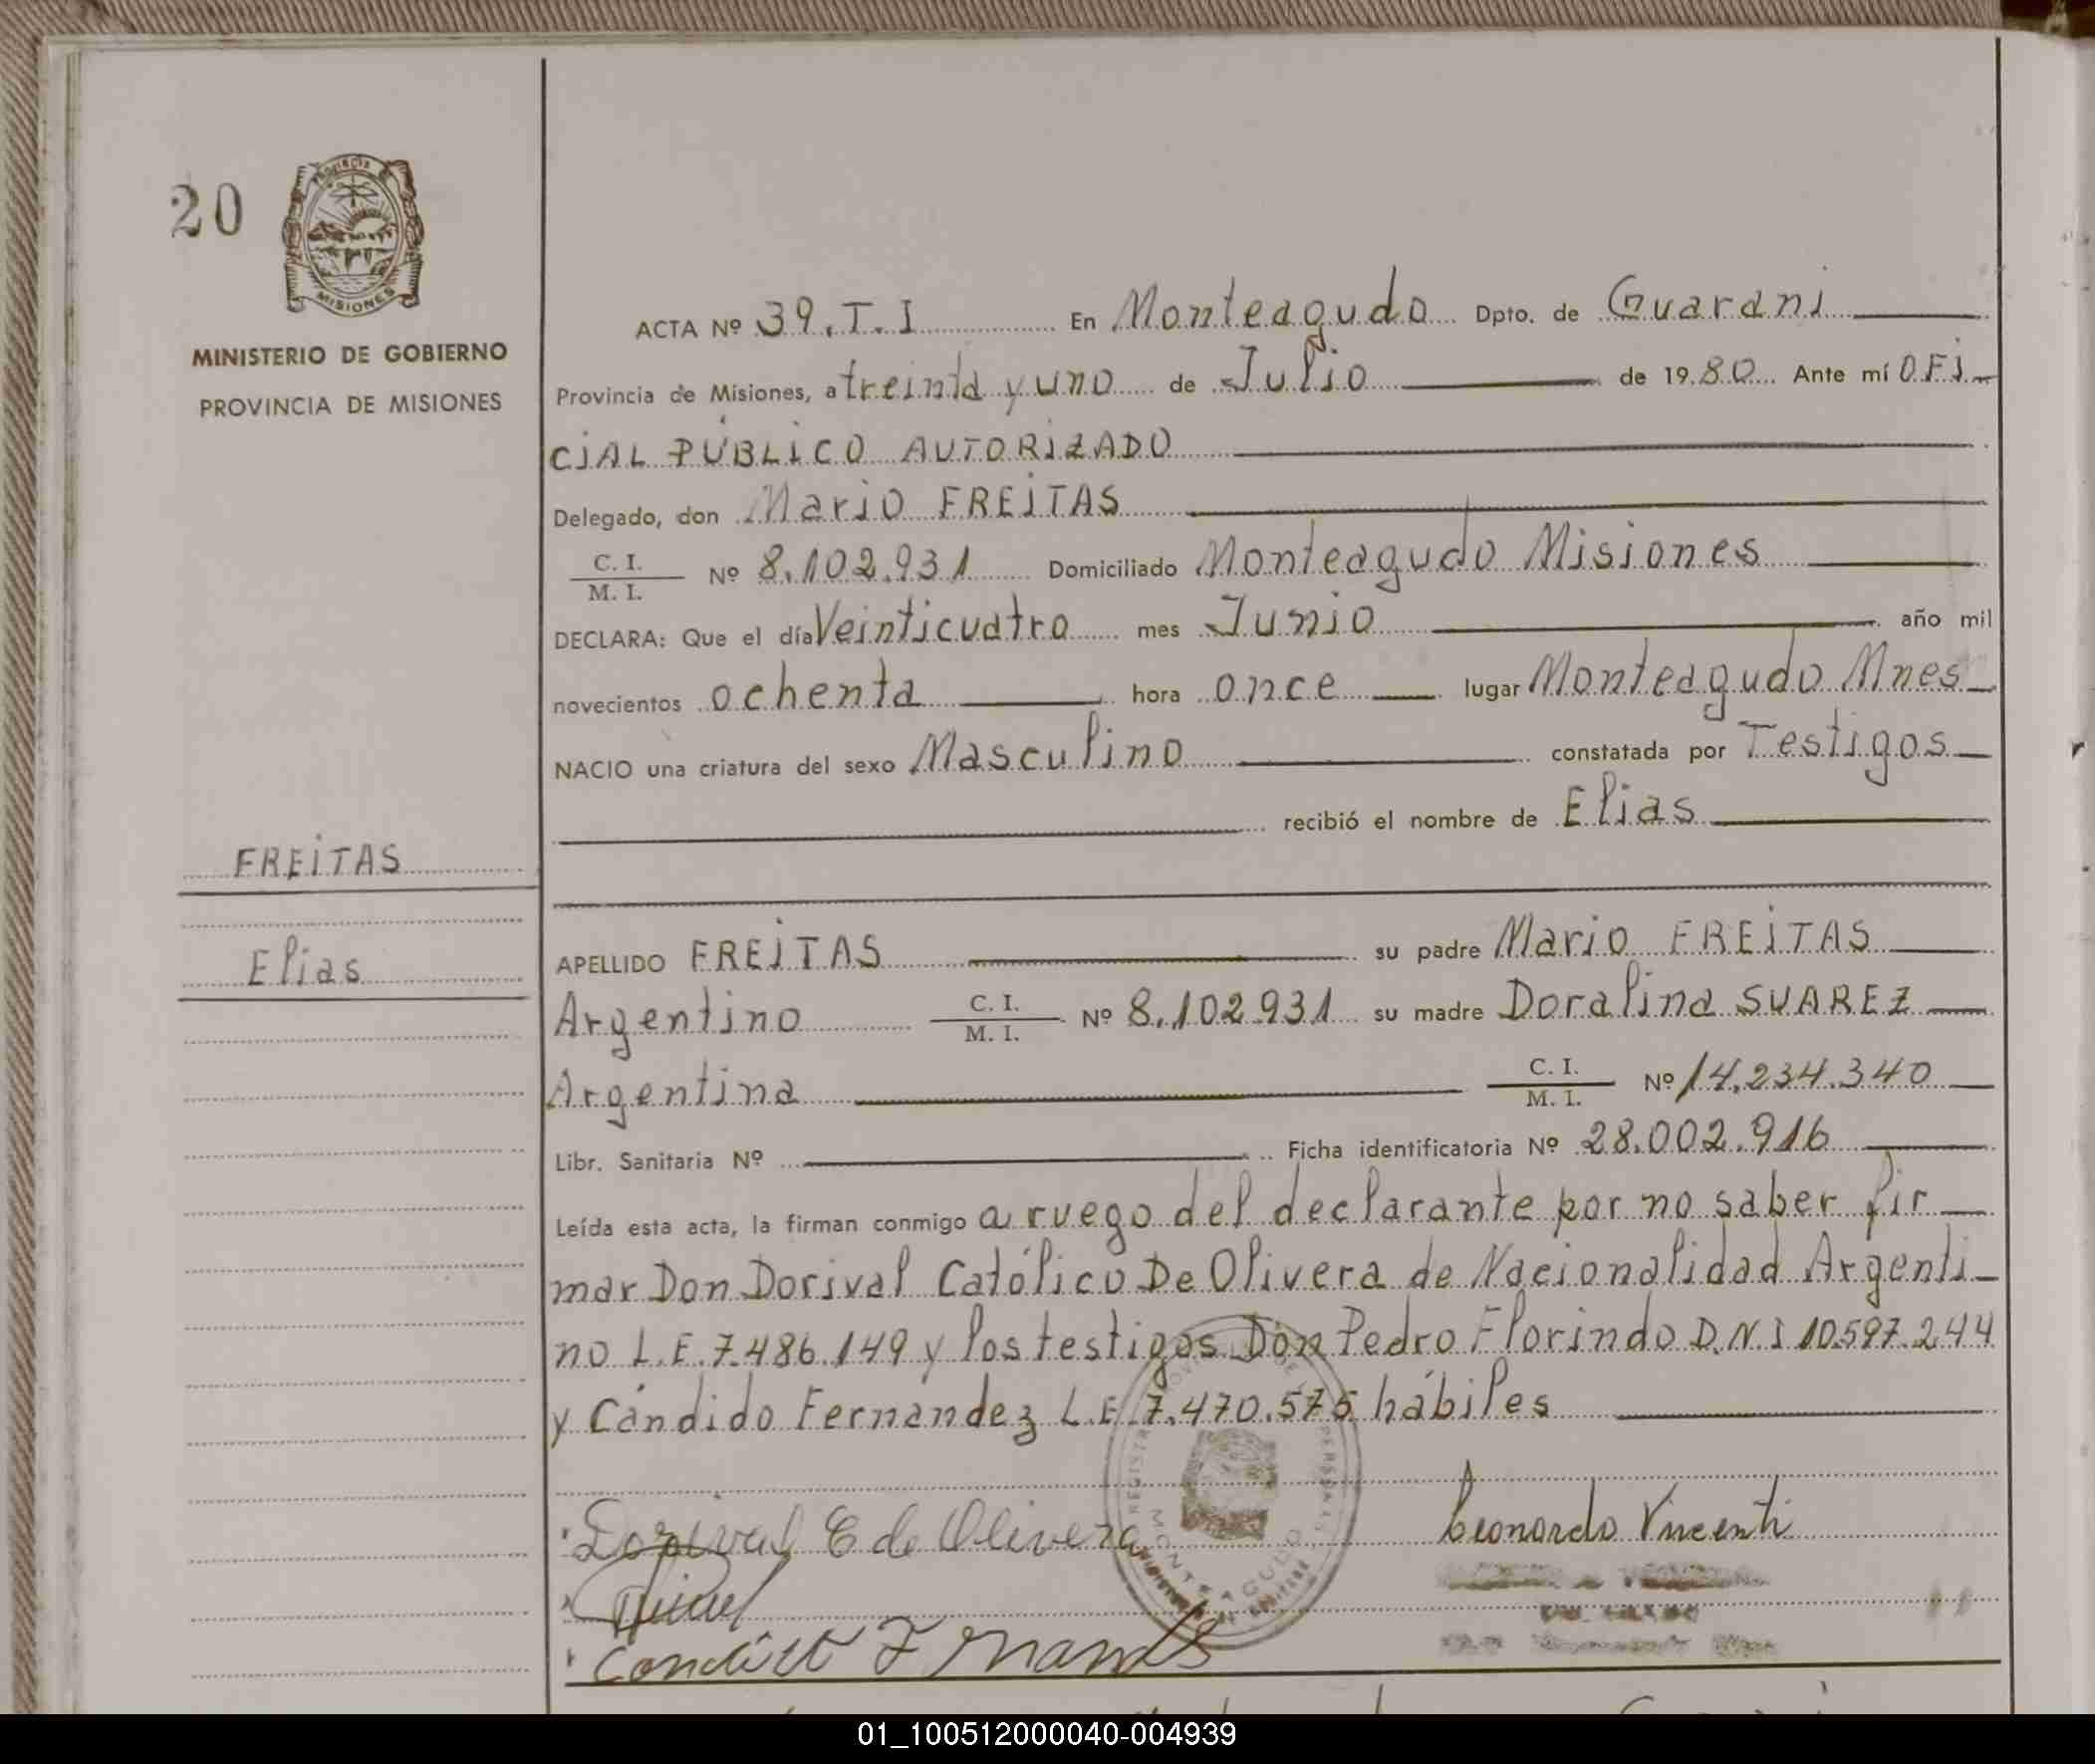 20
PROVINCIA DE
MISIONES
MINISTERIO DE GOBIERNO
PROVINCIA DE MISIONES
FREITAS
Elias
ACTA Nº 39.T.I En Monteagudo Dpto. de Guarani
Provincia de Misiones, a treinta y uno de Julio de 1980 Ante mí OFI-
CIAL PÚBLICO AUTORIZADO
Delegado, don Mario FREITAS
C. I.
M. I. Nº 8.102.931 Domiciliado Monteagudo Misiones
DECLARA: Que el día Veinticuatro mes Junio año mil
novecientos ochenta hora once lugar Monteagudo Mnes
NACIO una criatura del sexo Masculino constatada por Testigos
recibió el nombre de Elias
APELLIDO FREITAS su padre Mario FREITAS
Argentino C. I. M. I. Nº 8.102.931 su madre Doralina SUAREZ
Argentina C. I. M. I. Nº 14.234.340
Libr. Sanitaria Nº Ficha identificatoria Nº 28.002.916
Leída esta acta, la firman conmigo a ruego del declarante por no saber fir-
mar Don Dorival Católico De Olivera de Nacionalidad Argenti-
no L.E.7.486.149 y los testigos Don Pedro Florindo D.N.I 10.597.244
y Cándido Fernandez L.E.7.470.575 hábiles
Dorival C de Olivera
Leonardo Vincenti
01_100512000040-004939